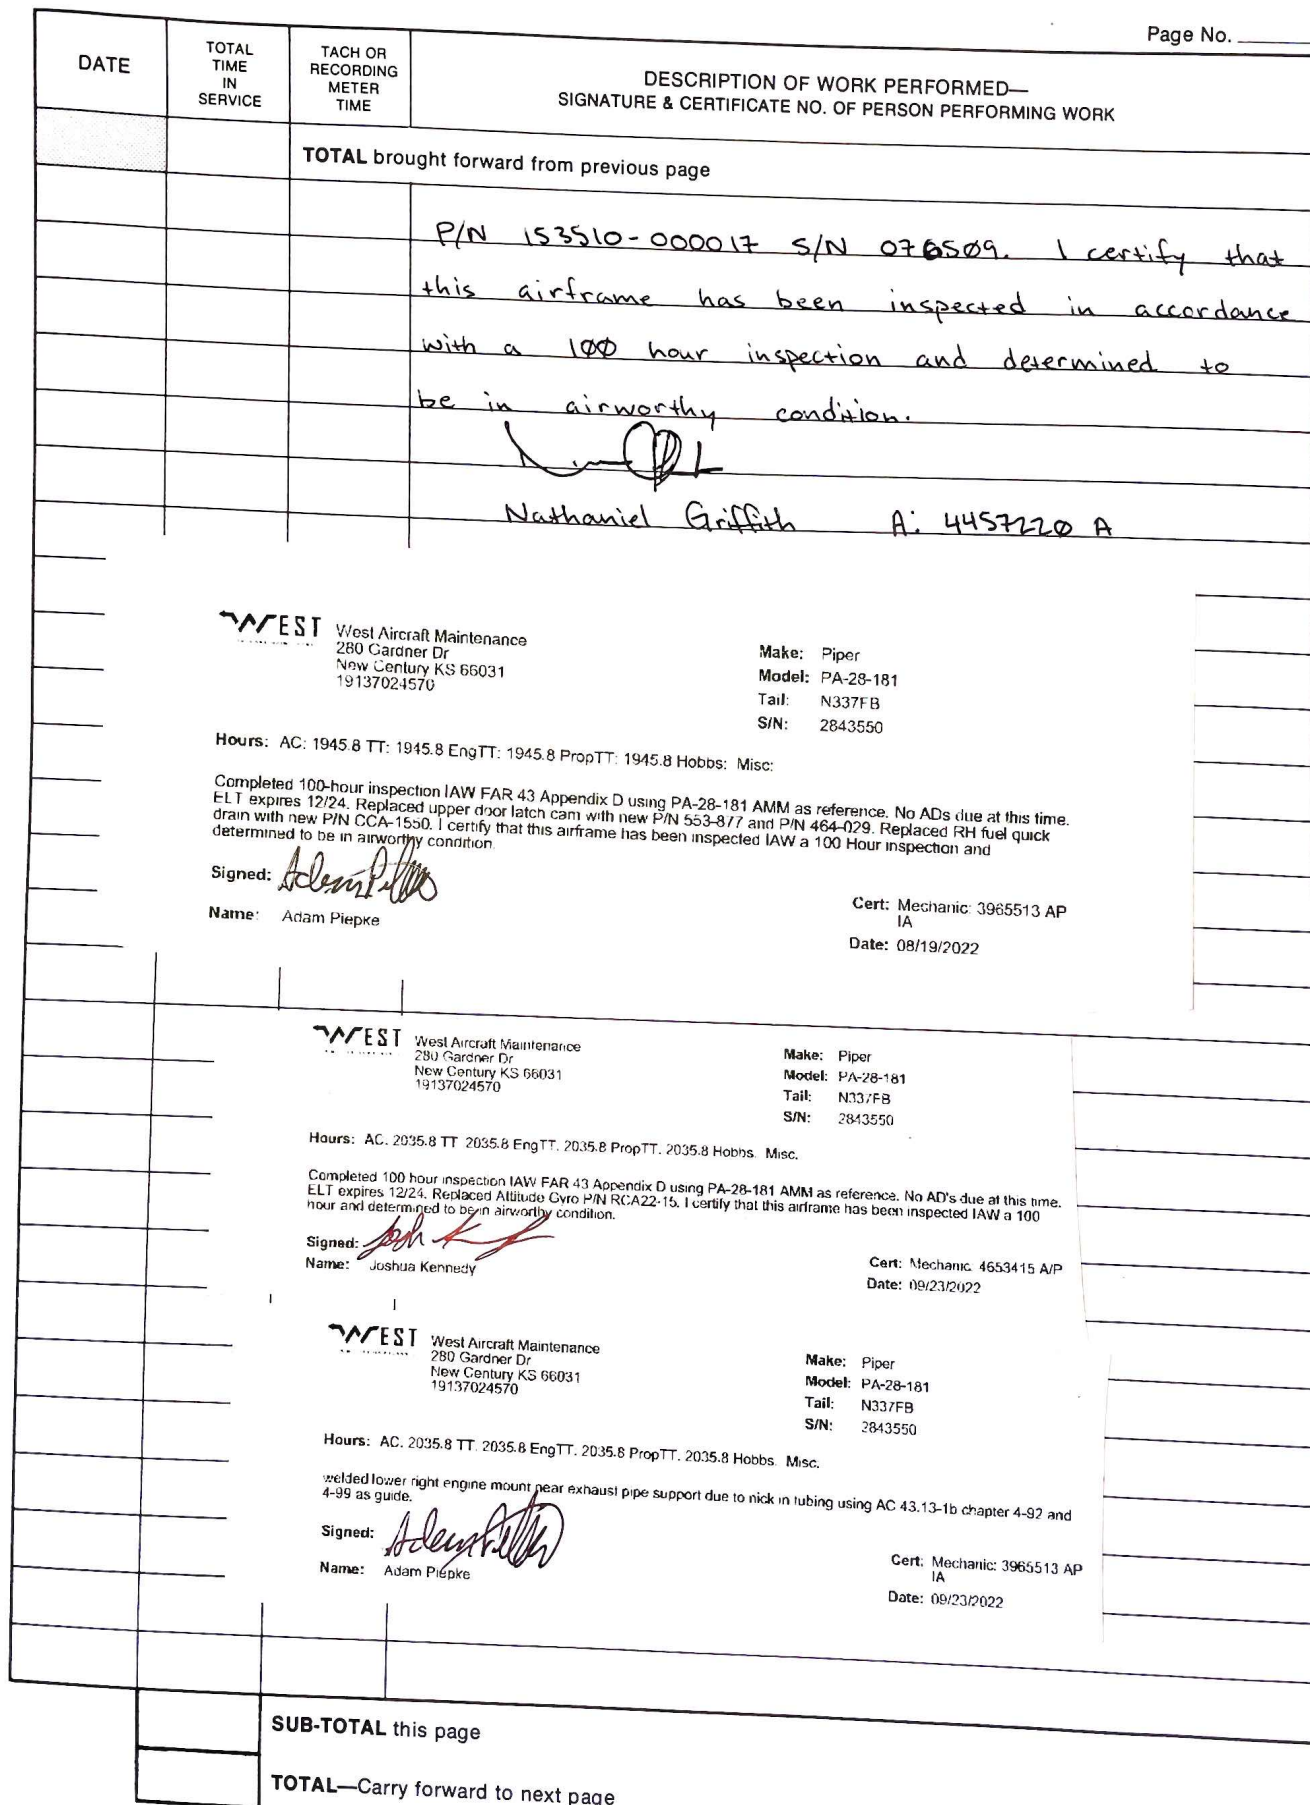 Page No.
DATE
TOTAL
TIME
IN
SERVICE
TACH OR
RECORDING
METER
TIME
DESCRIPTION OF WORK PERFORMED—
SIGNATURE & CERTIFICATE NO. OF PERSON PERFORMING WORK
TOTAL brought forward from previous page
P/N 153510-000017 S/N 076509. I certify that
this airframe has been inspected in accordance
with a 100 hour inspection and determined to
be in airworthy condition.
Nathaniel Griffith A: 4457220 A
WEST
West Aircraft Maintenance
280 Gardner Dr
New Century KS 66031
19137024570
Make: Piper
Model: PA-28-181
Tail: N337FB
S/N: 2843550
Hours: AC: 1945.8 TT: 1945.8 EngTT: 1945.8 PropTT: 1945.8 Hobbs: Misc:
Completed 100-hour inspection IAW FAR 43 Appendix D using PA-28-181 AMM as reference. No ADs due at this time.
ELT expires 12/24. Replaced upper door latch cam with new P/N 553-877 and P/N 464-029. Replaced RH fuel quick
drain with new P/N CCA-1550. I certify that this airframe has been inspected IAW a 100 Hour inspection and
determined to be in airworthy condition.
Signed:
Name: Adam Piepke
Cert: Mechanic: 3965513 AP
IA
Date: 08/19/2022
WEST
West Aircraft Maintenance
280 Gardner Dr
New Century KS 66031
19137024570
Make: Piper
Model: PA-28-181
Tail: N337FB
S/N: 2843550
Hours: AC. 2035.8 TT 2035.8 EngTT. 2035.8 PropTT. 2035.8 Hobbs. Misc.
Completed 100 hour inspection IAW FAR 43 Appendix D using PA-28-181 AMM as reference. No AD's due at this time.
ELT expires 12/24. Replaced Altitude Gyro P/N RCA22-15. I certify that this airframe has been inspected IAW a 100
hour and determined to be in airworthy condition.
Signed:
Name: Joshua Kennedy
Cert: Mechanic 4653415 A/P
Date: 09/23/2022
WEST
West Aircraft Maintenance
280 Gardner Dr
New Century KS 66031
19137024570
Make: Piper
Model: PA-28-181
Tail: N337FB
S/N: 2843550
Hours: AC. 2035.8 TT. 2035.8 EngTT. 2035.8 PropTT. 2035.8 Hobbs. Misc.
welded lower right engine mount near exhaust pipe support due to nick in tubing using AC 43.13-1b chapter 4-92 and
4-99 as guide.
Signed:
Name: Adam Piepke
Cert: Mechanic: 3965513 AP
IA
Date: 09/23/2022
SUB-TOTAL this page
TOTAL—Carry forward to next page